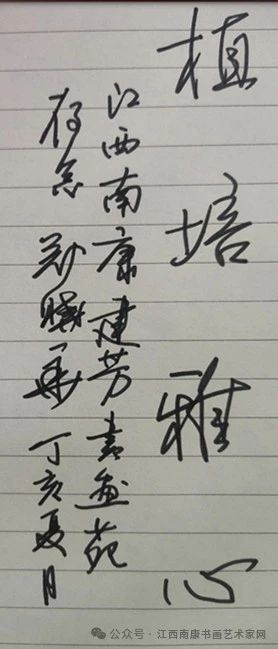 植培雅心
江西南康建芳书画苑
存念 郑曦午 丁亥夏月
公众号·江西南康书画艺术家网